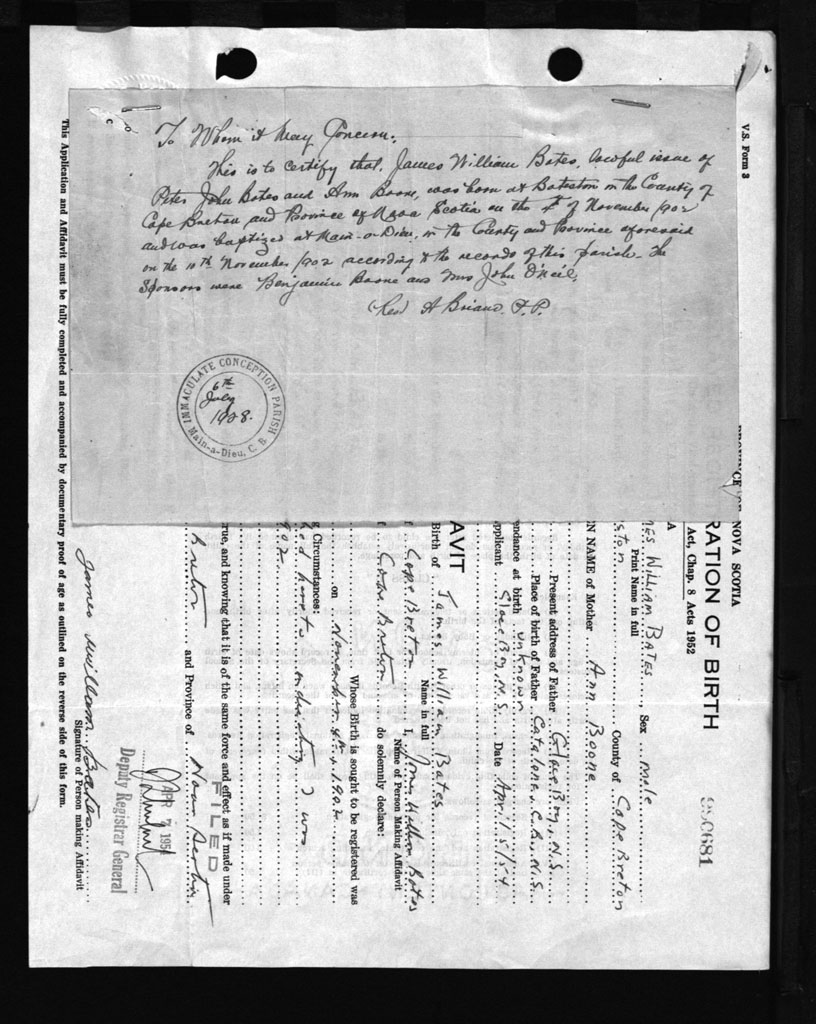 To Whom it May Concern:
This is to certify that, James William Bates, lawful issue of
Peter John Bates and Ann Boone, was born at Bateston in the County of
Cape Breton and Province of Nova Scotia on the 4th of November 1902
and was baptized at Main-a-Dieu, in the County and Province aforesaid
on the 10th November 1902 according to the records of this parish. The
Sponsors were Benjamin Boone and Mrs John O'Neil.
(Rev) A Briand. P.P.
IMMACULATE CONCEPTION PARISH
Main-a-Dieu, C. B.
6th
July
1928.
V.S. Form 3
NOVA SCOTIA
RATION OF BIRTH
Act, Chap. 8 Acts 1952
MES WILLIAM BATES, Sex Male
Print Name in full
ston County of Cape Breton
N NAME of Mother Ann Boone
Present address of Father Glace Bay, N.S.
Place of birth of Father Catalone, C.B., N.S.
endance at birth unknown
pplicant Glace Bay, N.S. Date April 5/54
AVIT
Birth of James William Bates
Name in full
Cape Breton I, James William Bates
Name of Person Making Affidavit
Cape Breton do solemnly declare:
Whose Birth is sought to be registered was
on November 4th, 1902
g Circumstances:
hed hereto indicating I was
902.
rue, and knowing that it is of the same force and effect as if made under
Breton and Province of Nova Scotia
FILED
APR 7 1954
Deputy Registrar General
James William Bates
Signature of Person making Affidavit
This Application and Affidavit must be fully completed and accompanied by documentary proof of age as outlined on the reverse side of this form.